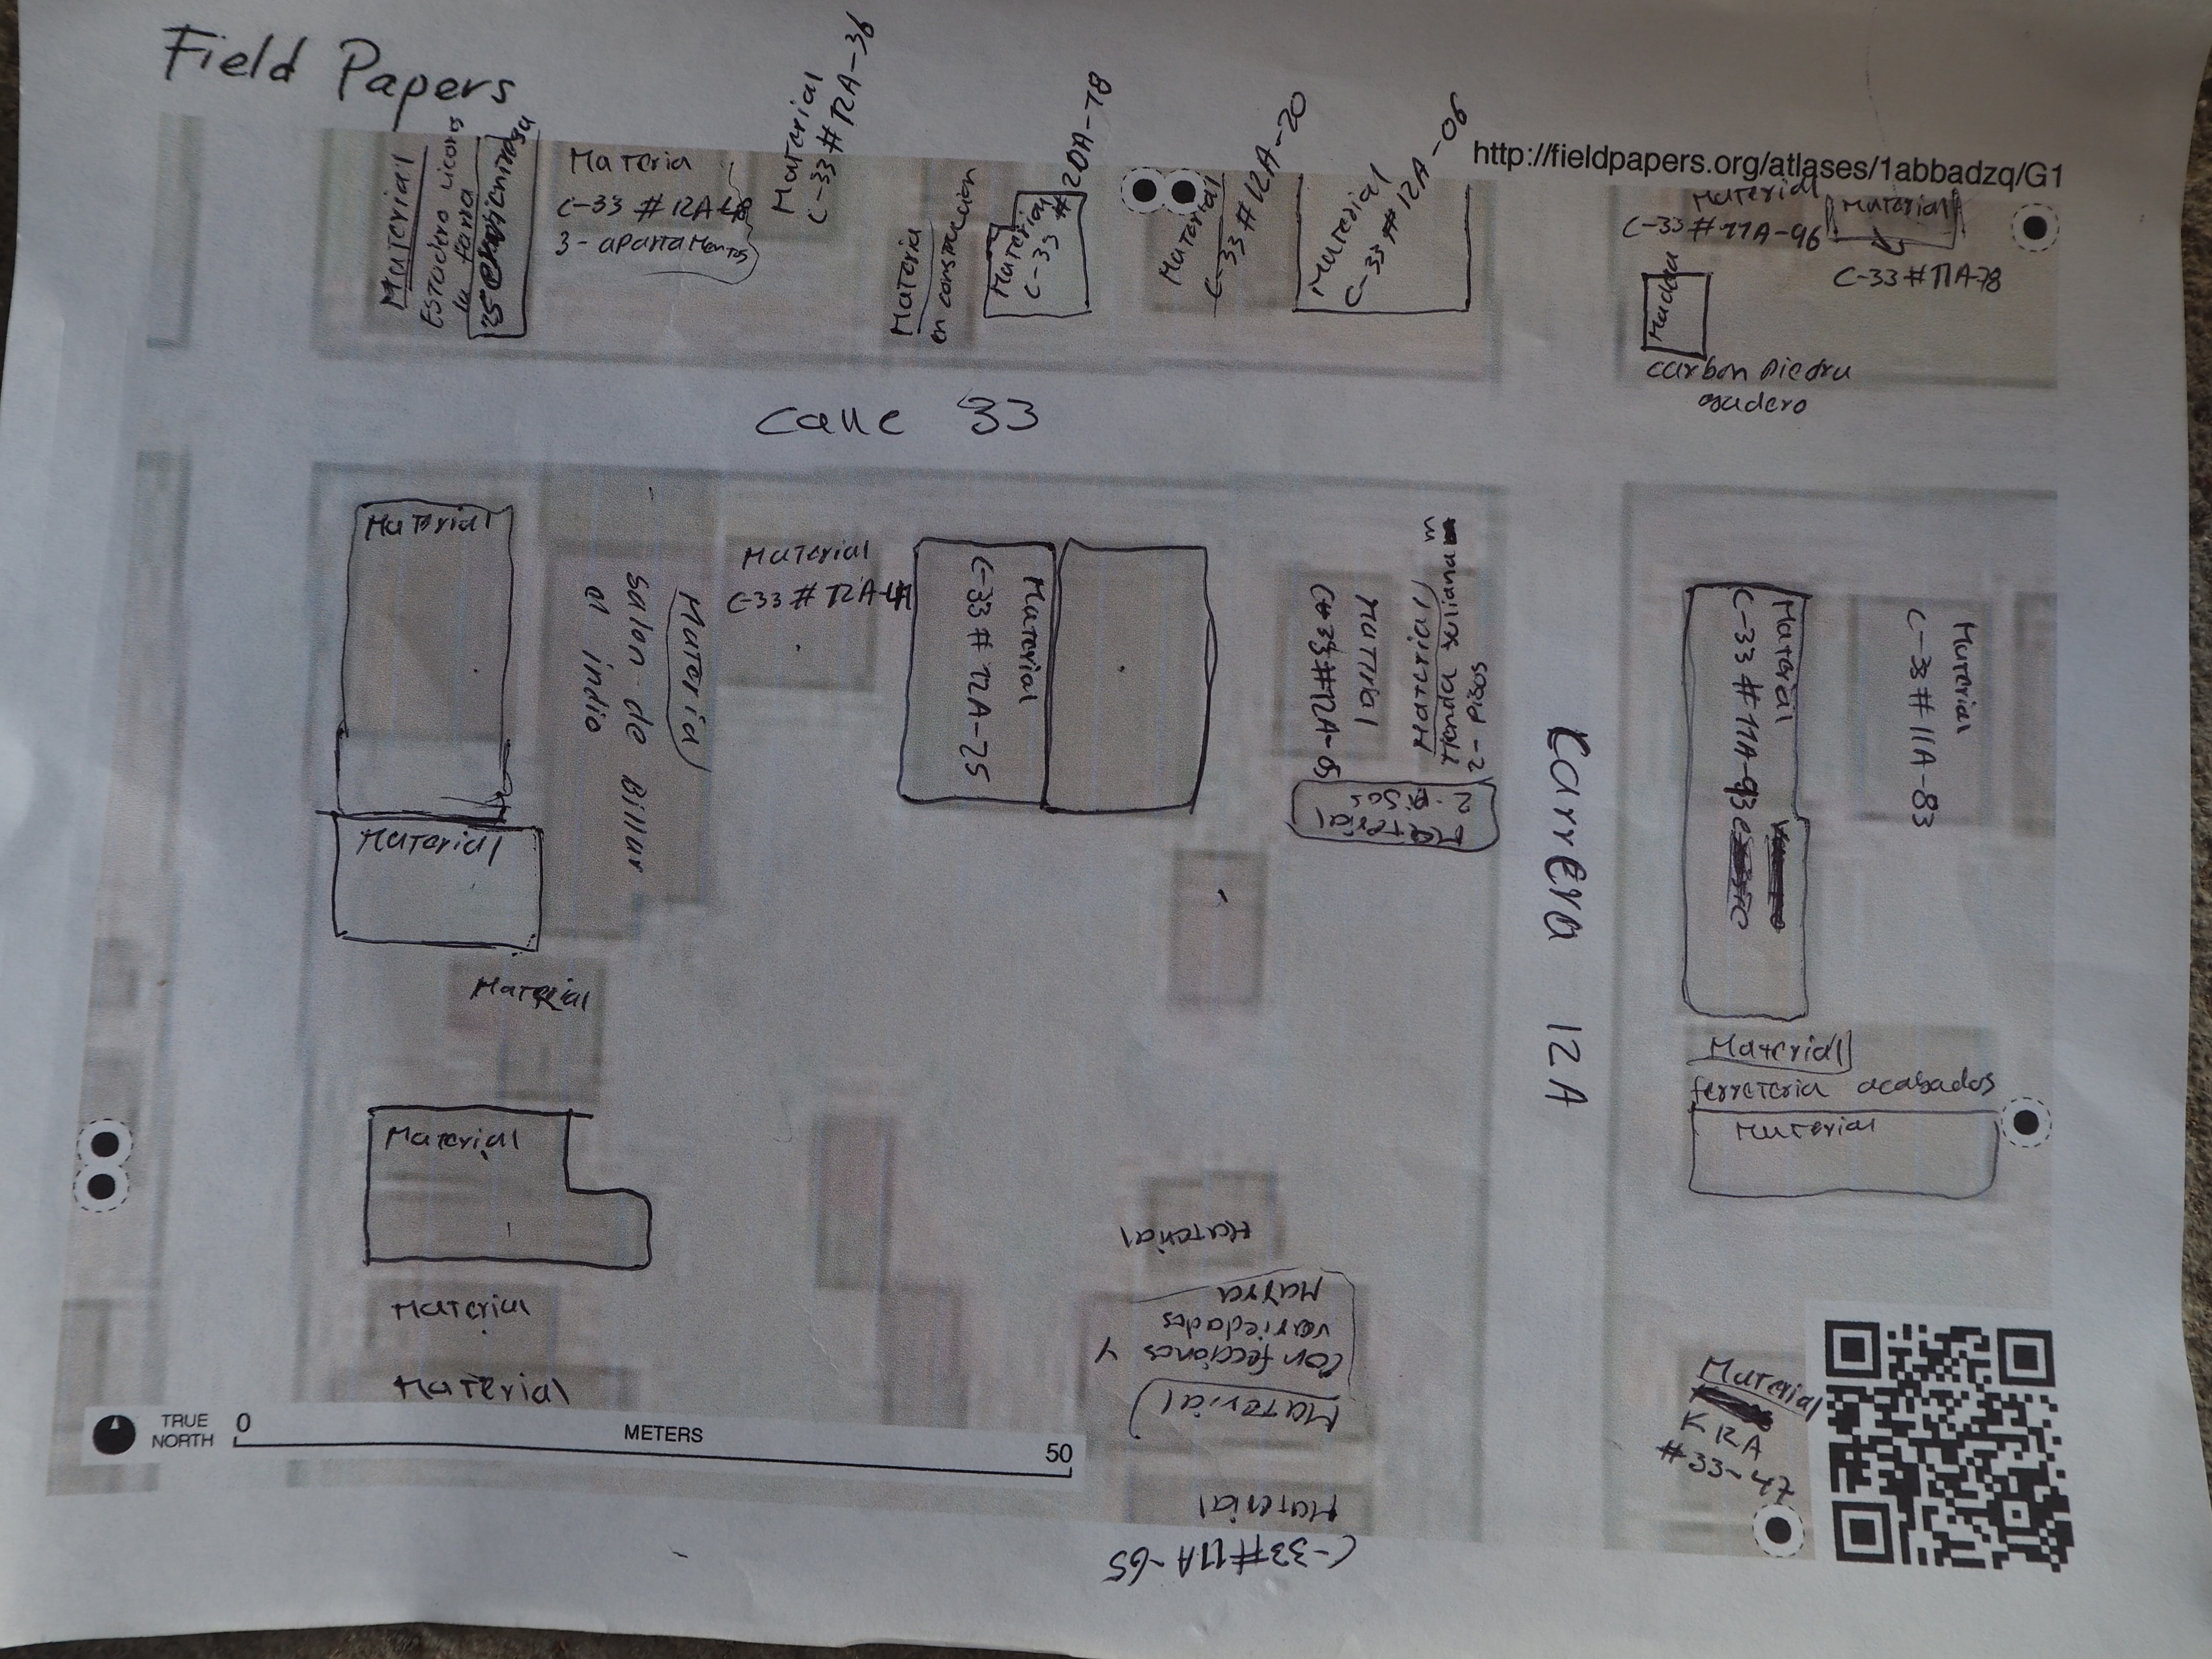 Field Papers
http://fieldpapers.org/atlases/1abbadzq/G1
Material
Estadero licores
la
Materia
C-33 # 12A-48
3-apartamentos
Material
C-33 # 12A-36
Materia
en construccion
Material
C-33 # 20A-18
Material
C-33 # 12A-20
Material
C-33 # 12A-06
Material
C-33 # 11A-96
Material
C-33 # 11A-78
Madera
carbon piedra
asadero
Calle 33
Material
Materia
Salon de Billar
el indio
Material
C-33 # 12A-41
Material
C-33 # 12A-25
Material
Material
Tienda
2-Pisos
Material
2-Pisos
Carrera 12A
Material
C-33 # 11A-93
Material
C-33 # 11A-83
Material
Material
Material
ferreteria acabados
Material
Material
Material
Material
Material
Material
Confecciones y
variedades
Mayra
Material
C-33 # 11A-65
Material
K 12A
# 33-47
TRUE
NORTH
0
METERS
50